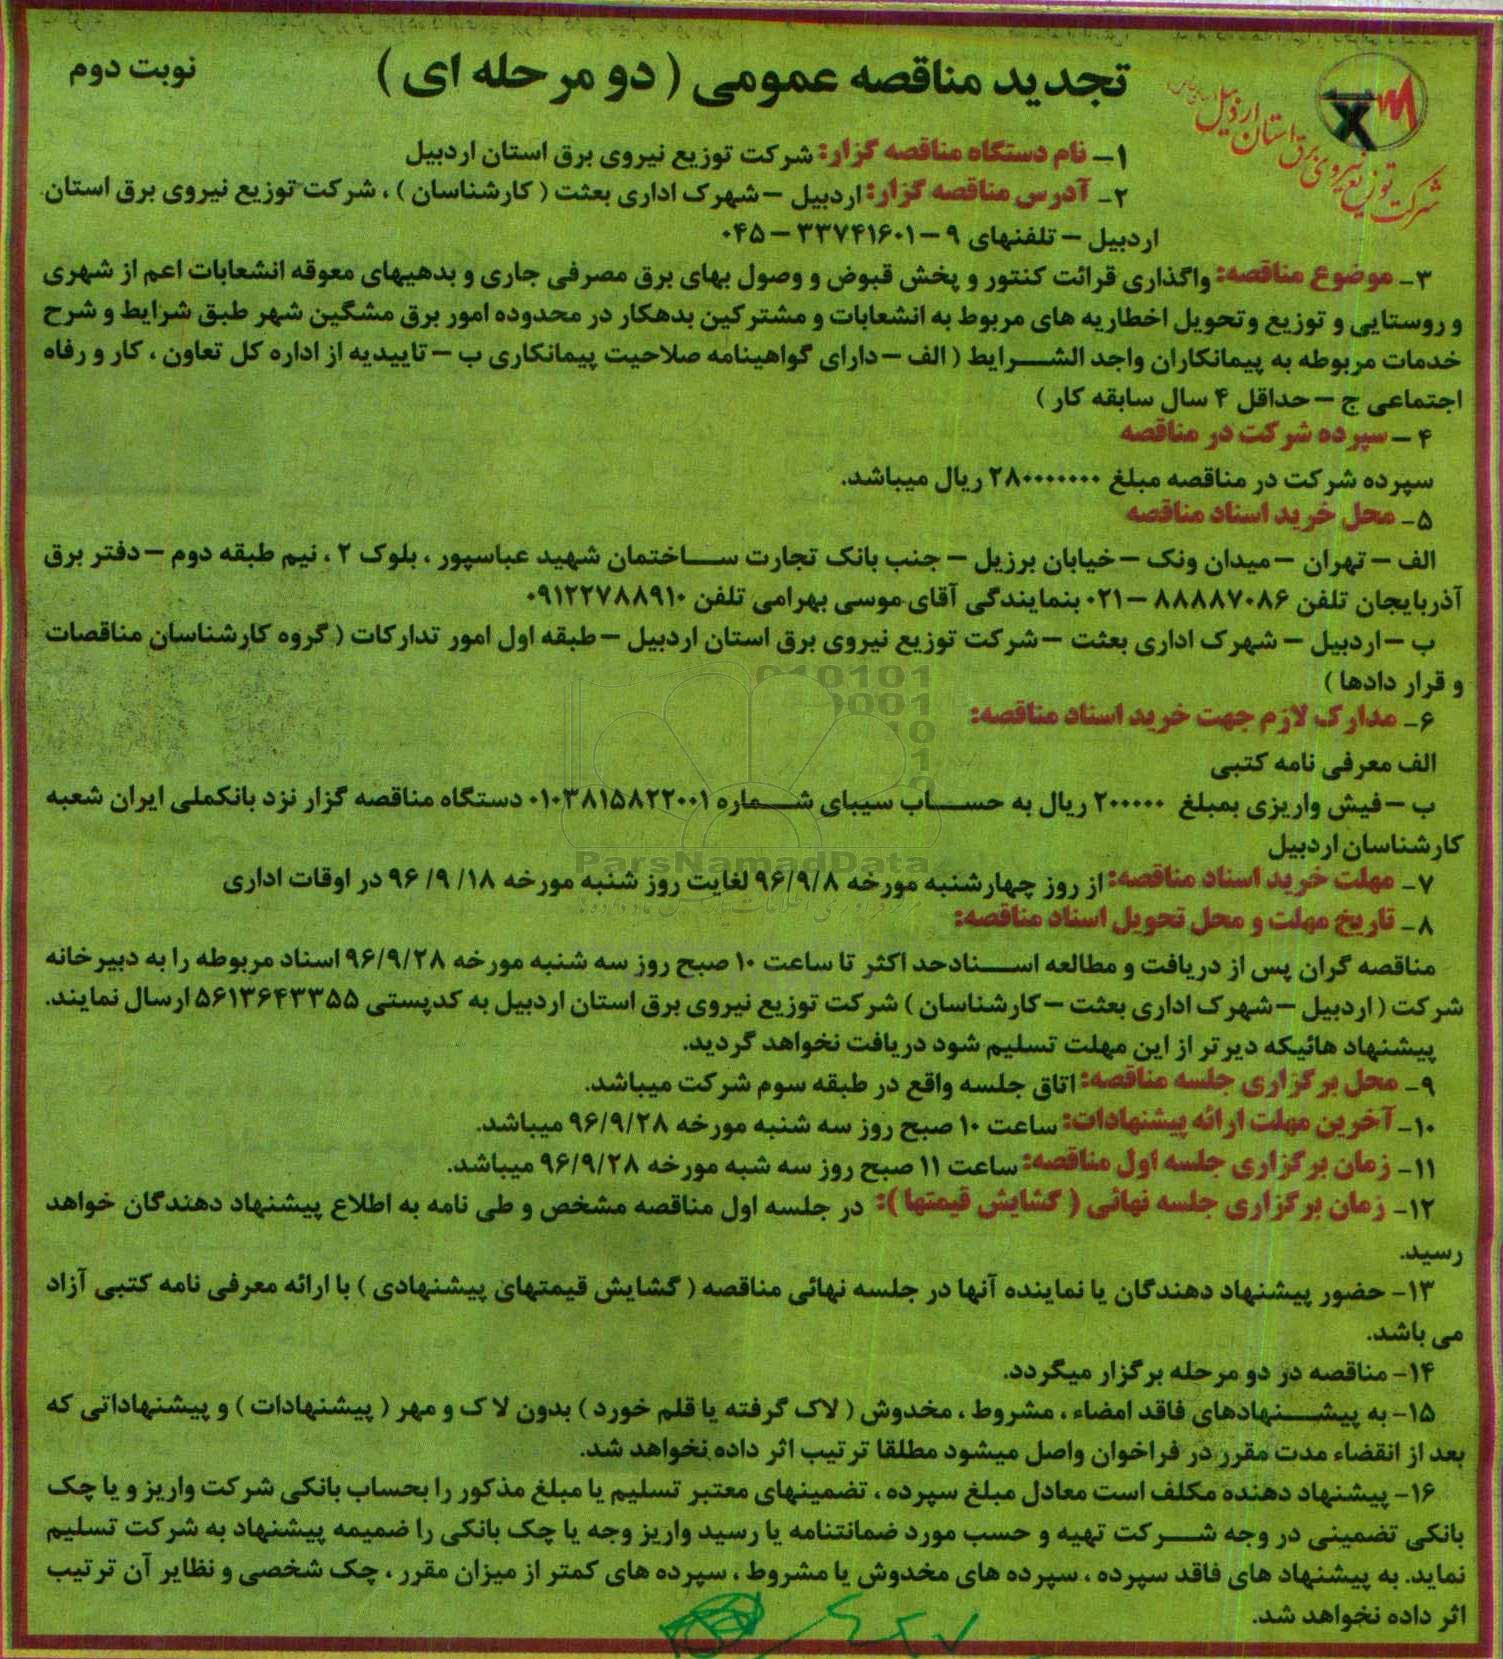 تجدید مناقصه عمومی ( دو مرحله ای )
نوبت دوم
شرکت توزیع نیروی برق استان اردبیل
۱- نام دستگاه مناقصه گزار: شرکت توزیع نیروی برق استان اردبیل
۲- آدرس مناقصه گزار: اردبیل – شهرک اداری بعثت ( کارشناسان ) ، شرکت توزیع نیروی برق استان
اردبیل – تلفنهای ۹ – ۳۳۷۴۱۶۰۱ – ۰۴۵
۳- موضوع مناقصه: واگذاری قرائت کنتور و پخش قبوض و وصول بهای برق مصرفی جاری و بدهیهای معوقه انشعابات اعم از شهری
و روستایی و توزیع و تحویل اخطاریه های مربوط به انشعابات و مشترکین بدهکار در محدوده امور برق مشگین شهر طبق شرایط و شرح
خدمات مربوطه به پیمانکاران واجد الشرایط ( الف – دارای گواهینامه صلاحیت پیمانکاری ب – تاییدیه از اداره کل تعاون ، کار و رفاه
اجتماعی ج – حداقل ۴ سال سابقه کار )
۴ – سپرده شرکت در مناقصه
سپرده شرکت در مناقصه مبلغ ۲۸۰۰۰۰۰۰۰ ریال میباشد.
۵- محل خرید اسناد مناقصه
الف – تهران – میدان ونک – خیابان برزیل – جنب بانک تجارت ساختمان شهید عباسپور ، بلوک ۲ ، نیم طبقه دوم – دفتر برق
آذربایجان تلفن ۸۸۸۸۷۰۸۶ – ۰۲۱ بنمایندگی آقای موسی بهرامی تلفن ۰۹۱۲۲۷۸۸۹۱۰
ب – اردبیل – شهرک اداری بعثت – شرکت توزیع نیروی برق استان اردبیل – طبقه اول امور تدارکات ( گروه کارشناسان مناقصات
و قرار دادها )
۶- مدارک لازم جهت خرید اسناد مناقصه:
الف معرفی نامه کتبی
ب – فیش واریزی بمبلغ ۲۰۰۰۰۰ ریال به حساب سیبای شماره ۰۱۰۳۸۱۵۸۲۲۰۰۱ دستگاه مناقصه گزار نزد بانکملی ایران شعبه
کارشناسان اردبیل
ParsNamadData
۷- مهلت خرید اسناد مناقصه: از روز چهارشنبه مورخه ۹۶/۹/۸ لغایت روز شنبه مورخه ۱۸/ ۹/ ۹۶ در اوقات اداری
۸- تاریخ مهلت و محل تحویل اسناد مناقصه:
مناقصه گران پس از دریافت و مطالعه اسناد حد اکثر تا ساعت ۱۰ صبح روز سه شنبه مورخه ۹۶/۹/۲۸ اسناد مربوطه را به دبیرخانه
شرکت ( اردبیل – شهرک اداری بعثت – کارشناسان ) شرکت توزیع نیروی برق استان اردبیل به کدپستی ۵۶۱۳۶۴۳۳۵۵ ارسال نمایند.
پیشنهاد هائیکه دیرتر از این مهلت تسلیم شود دریافت نخواهد گردید.
۹- محل برگزاری جلسه مناقصه: اتاق جلسه واقع در طبقه سوم شرکت میباشد.
۱۰- آخرین مهلت ارائه پیشنهادات: ساعت ۱۰ صبح روز سه شنبه مورخه ۹۶/۹/۲۸ میباشد.
۱۱- زمان برگزاری جلسه اول مناقصه: ساعت ۱۱ صبح روز سه شبه مورخه ۹۶/۹/۲۸ میباشد.
۱۲- زمان برگزاری جلسه نهائی ( گشایش قیمتها ): در جلسه اول مناقصه مشخص و طی نامه به اطلاع پیشنهاد دهندگان خواهد
رسید.
۱۳- حضور پیشنهاد دهندگان یا نماینده آنها در جلسه نهائی مناقصه ( گشایش قیمتهای پیشنهادی ) با ارائه معرفی نامه کتبی آزاد
می باشد.
۱۴- مناقصه در دو مرحله برگزار میگردد.
۱۵- به پیشنهادهای فاقد امضاء ، مشروط ، مخدوش ( لاک گرفته یا قلم خورد ) بدون لاک و مهر ( پیشنهادات ) و پیشنهاداتی که
بعد از انقضاء مدت مقرر در فراخوان واصل میشود مطلقا ترتیب اثر داده نخواهد شد.
۱۶- پیشنهاد دهنده مکلف است معادل مبلغ سپرده ، تضمینهای معتبر تسلیم یا مبلغ مذکور را بحساب بانکی شرکت واریز و یا چک
بانکی تضمینی در وجه شرکت تهیه و حسب مورد ضمانتنامه یا رسید واریز وجه یا چک بانکی را ضمیمه پیشنهاد به شرکت تسلیم
نماید. به پیشنهاد های فاقد سپرده ، سپرده های مخدوش یا مشروط ، سپرده های کمتر از میزان مقرر ، چک شخصی و نظایر آن ترتیب
اثر داده نخواهد شد.